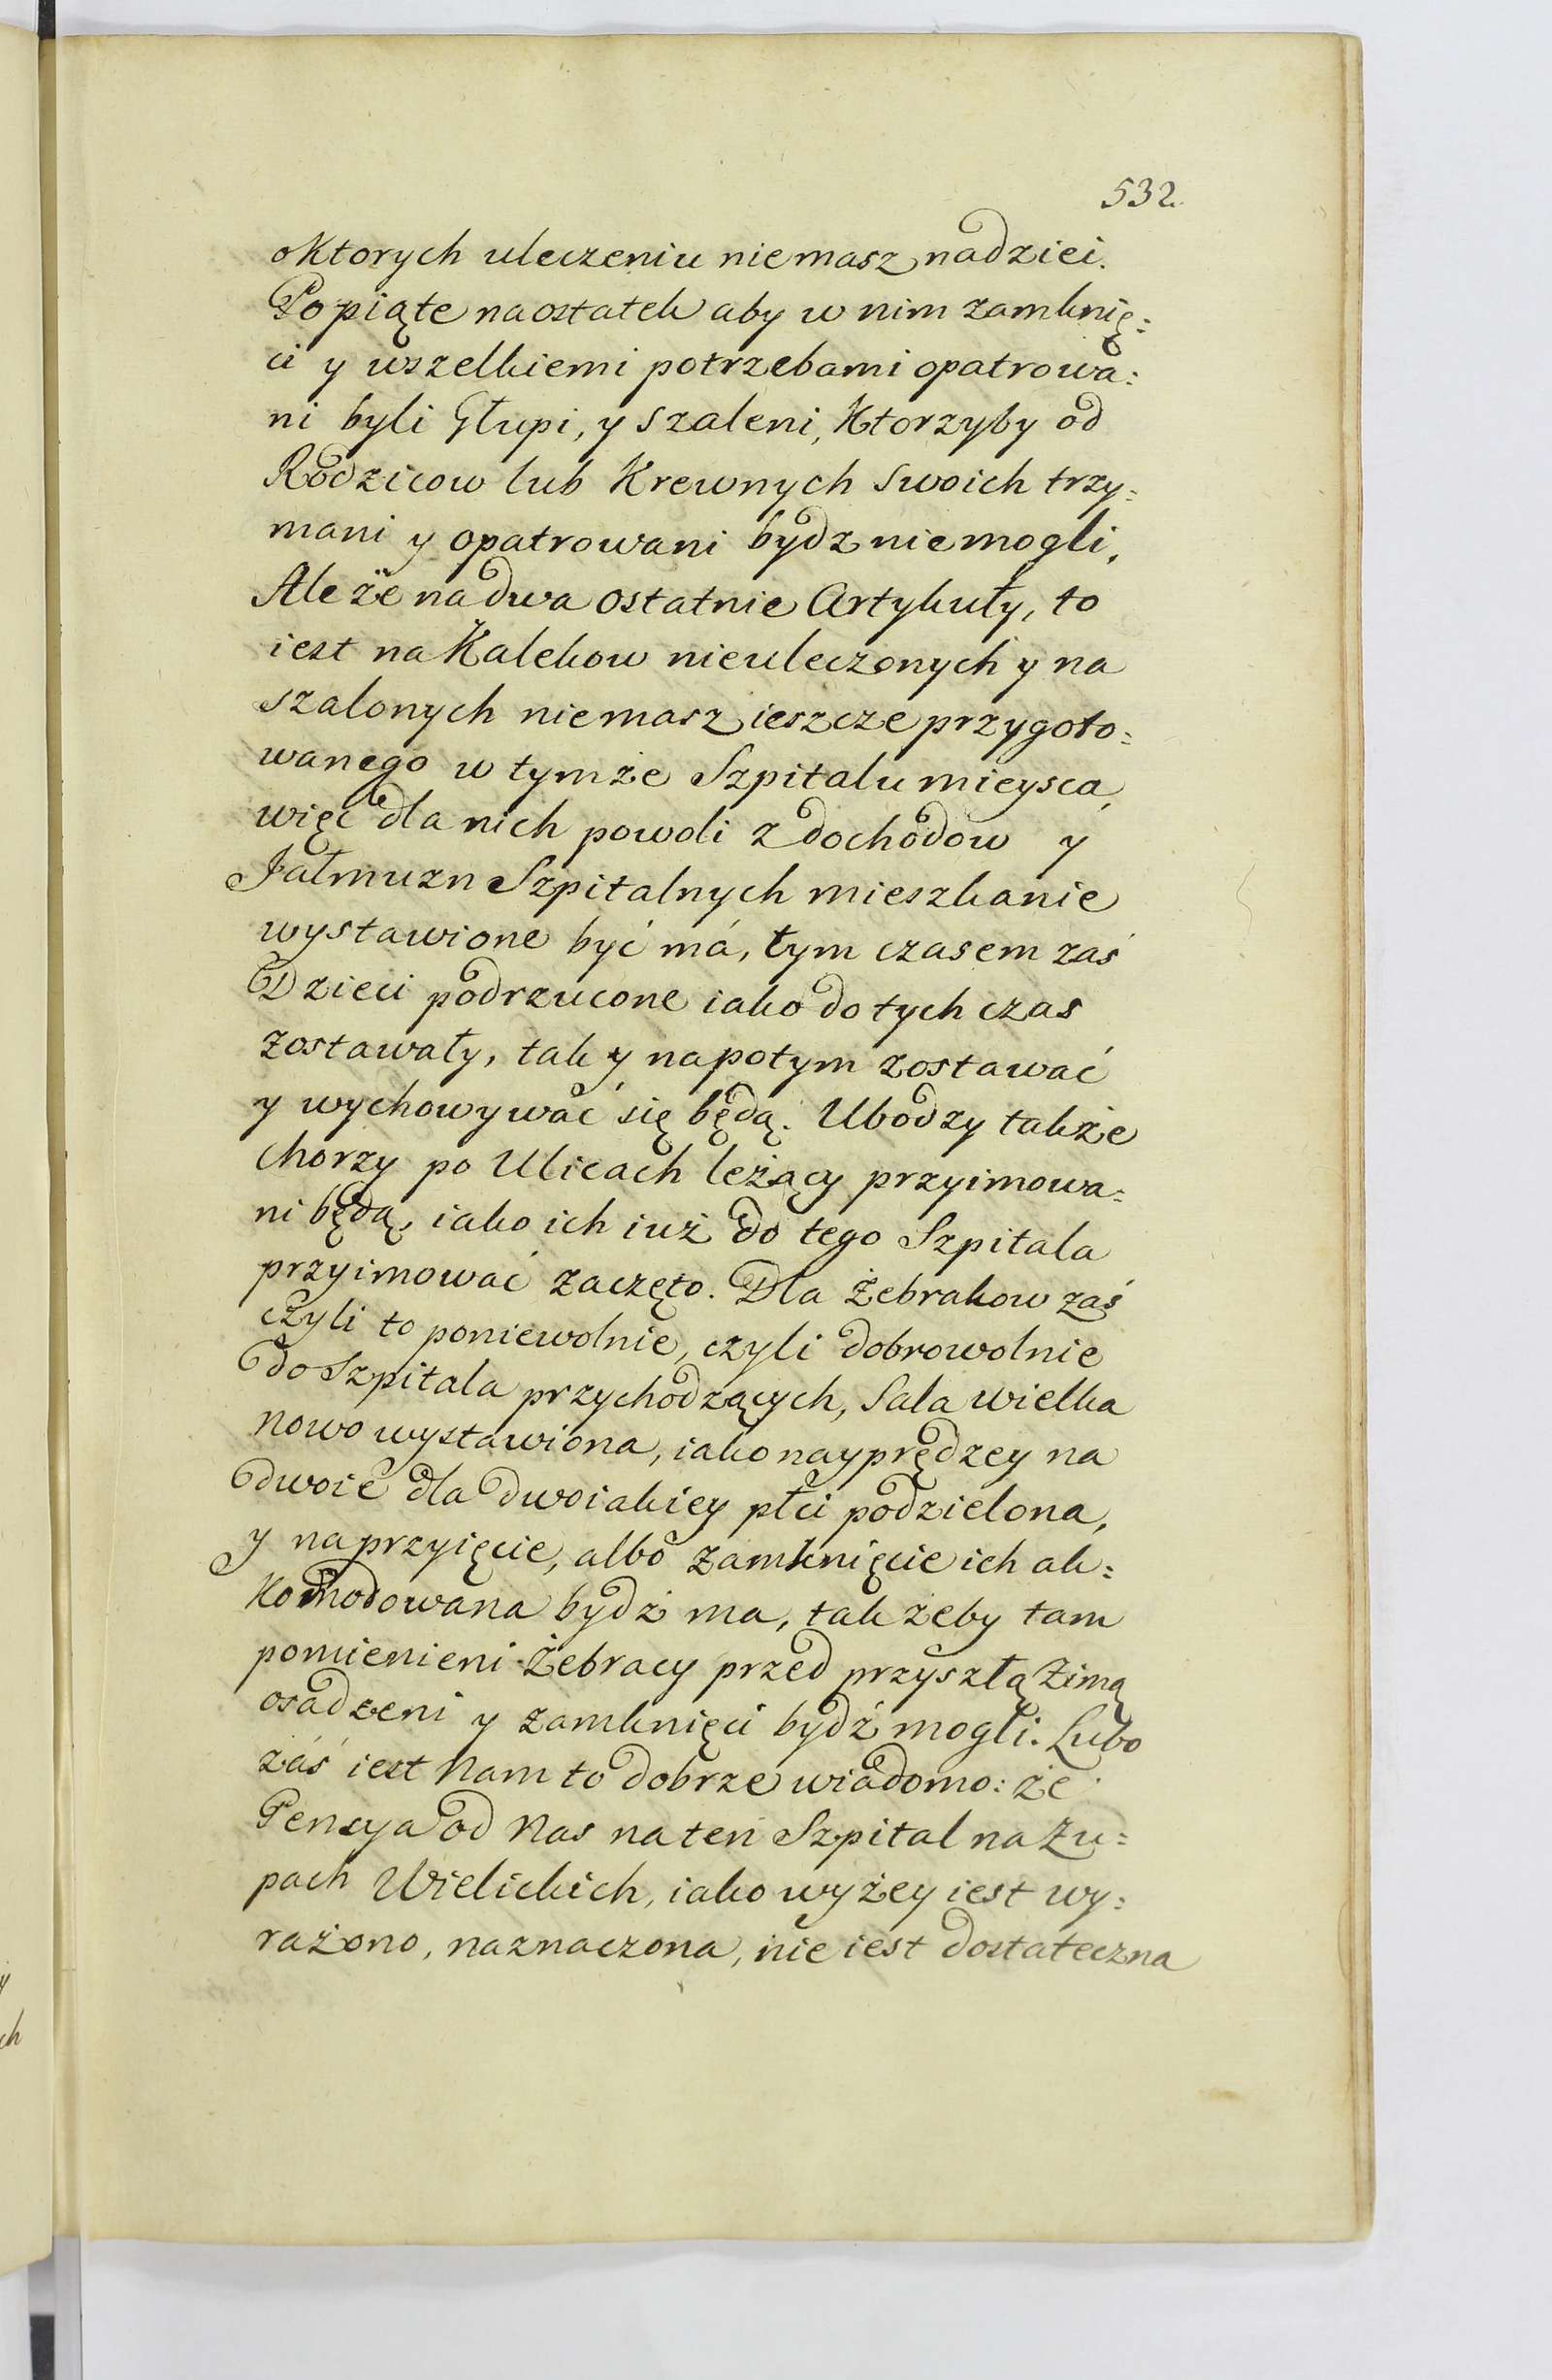 532.
oktorych uleczeniu niemasz nadziei.
Po piąte naostatek aby w nim zamknię:
ci y wszelkiemi potrzebami opatrowa:
ni byli Głupi, y szaleni, Ktorzyby od
Rodzicow lub Krewnych swoich trzy:
mani y opatrowani bydz niemogli.
Ale że na dwa ostatnie Artykuły, to
iest na Kalekow nieuleczonych y na
szalonych niemasz ieszcze przygoto:
wanego w tymże Szpitalu mieysca,
więc dla nich powoli z dochodow y
Jałmuzn Szpitalnych mieszkanie
wystawione być má, tym czasem zaś
Dzieci podrzucone iako do tych czas
zostawały, tak y napotym zostawać
y wychowywać się będą. Ubodzy także
chorzy po Ulicach leżący przyimowa:
ni będą, iako ich iuż do tego Szpitala
przyimować zaczęto. Dla Żebrakow zaś
czyli to poniewolnie, czyli dobrowolnie
do Szpitala przychodzących, Sala wielka
nowo wystawiona, iako nayprędzey na
dwoie dla dwoiakiey płci podzielona,
y na przyięcie, albo zamknięcie ich ak:
komodowana bydź ma, tak żeby tam
pomienieni Żebracy przed przyszłą Zimą
osadzeni y zamknięci bydź mogli. Lubo
zaś iest Nam to dobrze wiadomo: że
Pensya od Nas na ten Szpital na Żu:
pach Wielickich, iako wyżey iest wy:
rażono, naznaczona, nie iest dostateczna
y
ch